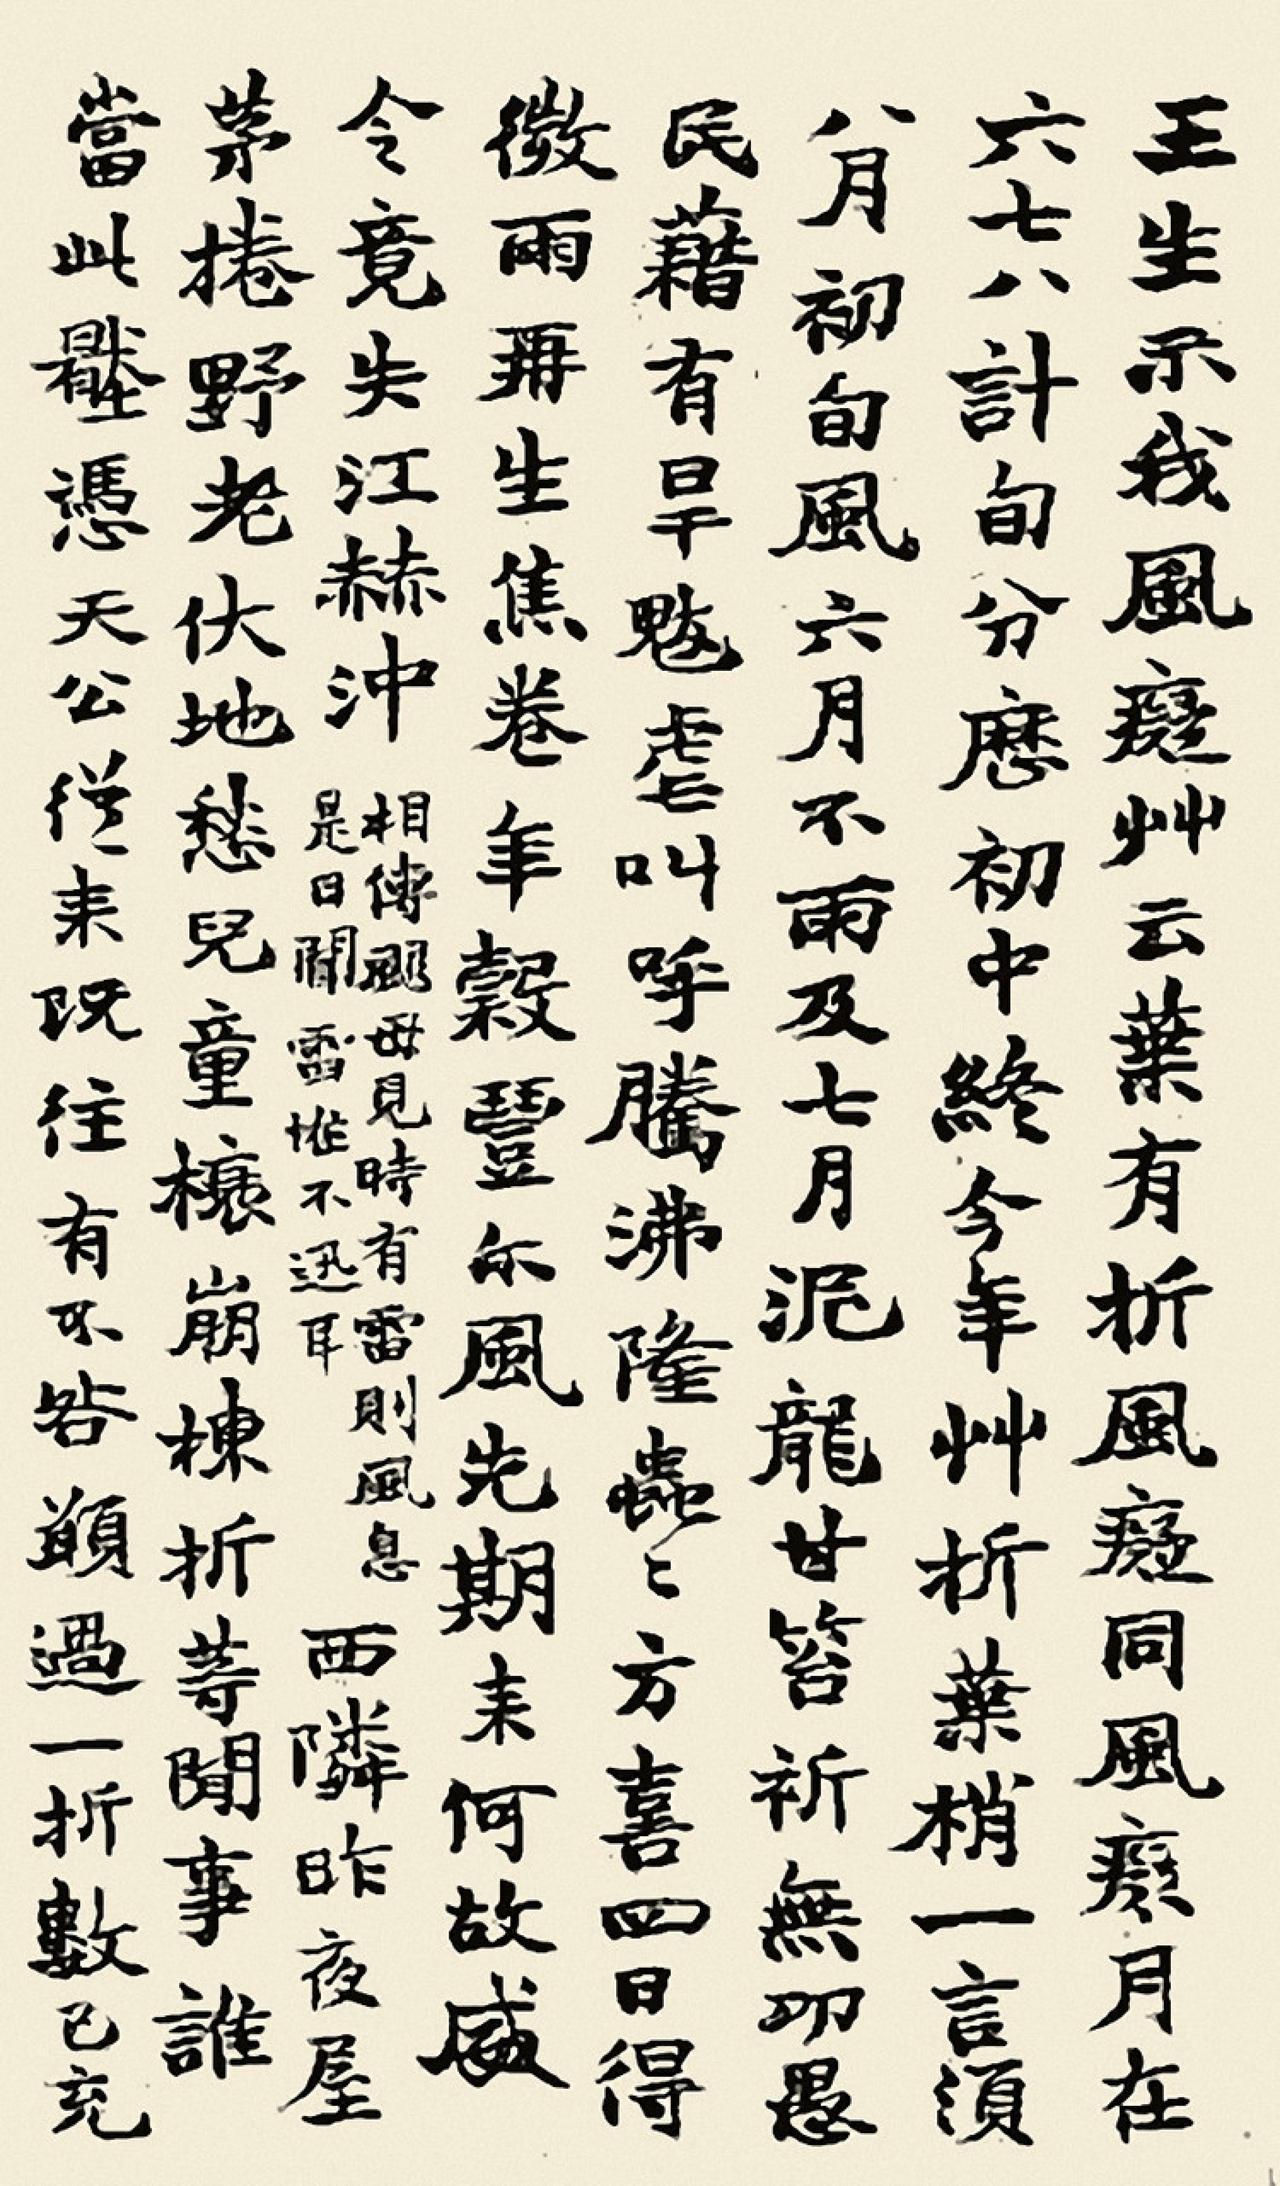 王生示我風癡艸云葉有折風癡同風癡月在
六七八計旬分歴初中終今年艸折葉梢一言須
八月初旬風六月不雨及七月泥龍甘笞祈無功愚
民藉有旱魃虐叫呼騰沸隆蟲〻方喜四日得
微雨再生焦卷年穀豐尓風先期来何故威
令竟失江赫沖
相傳颶母見時有雷則風息
是日聞雷惟不迅耳
西隣昨夜屋
茅捲野老伏地愁兒童榱崩棟折等閒事誰
當此憑天公從来既往有不咎顧過一折數已充